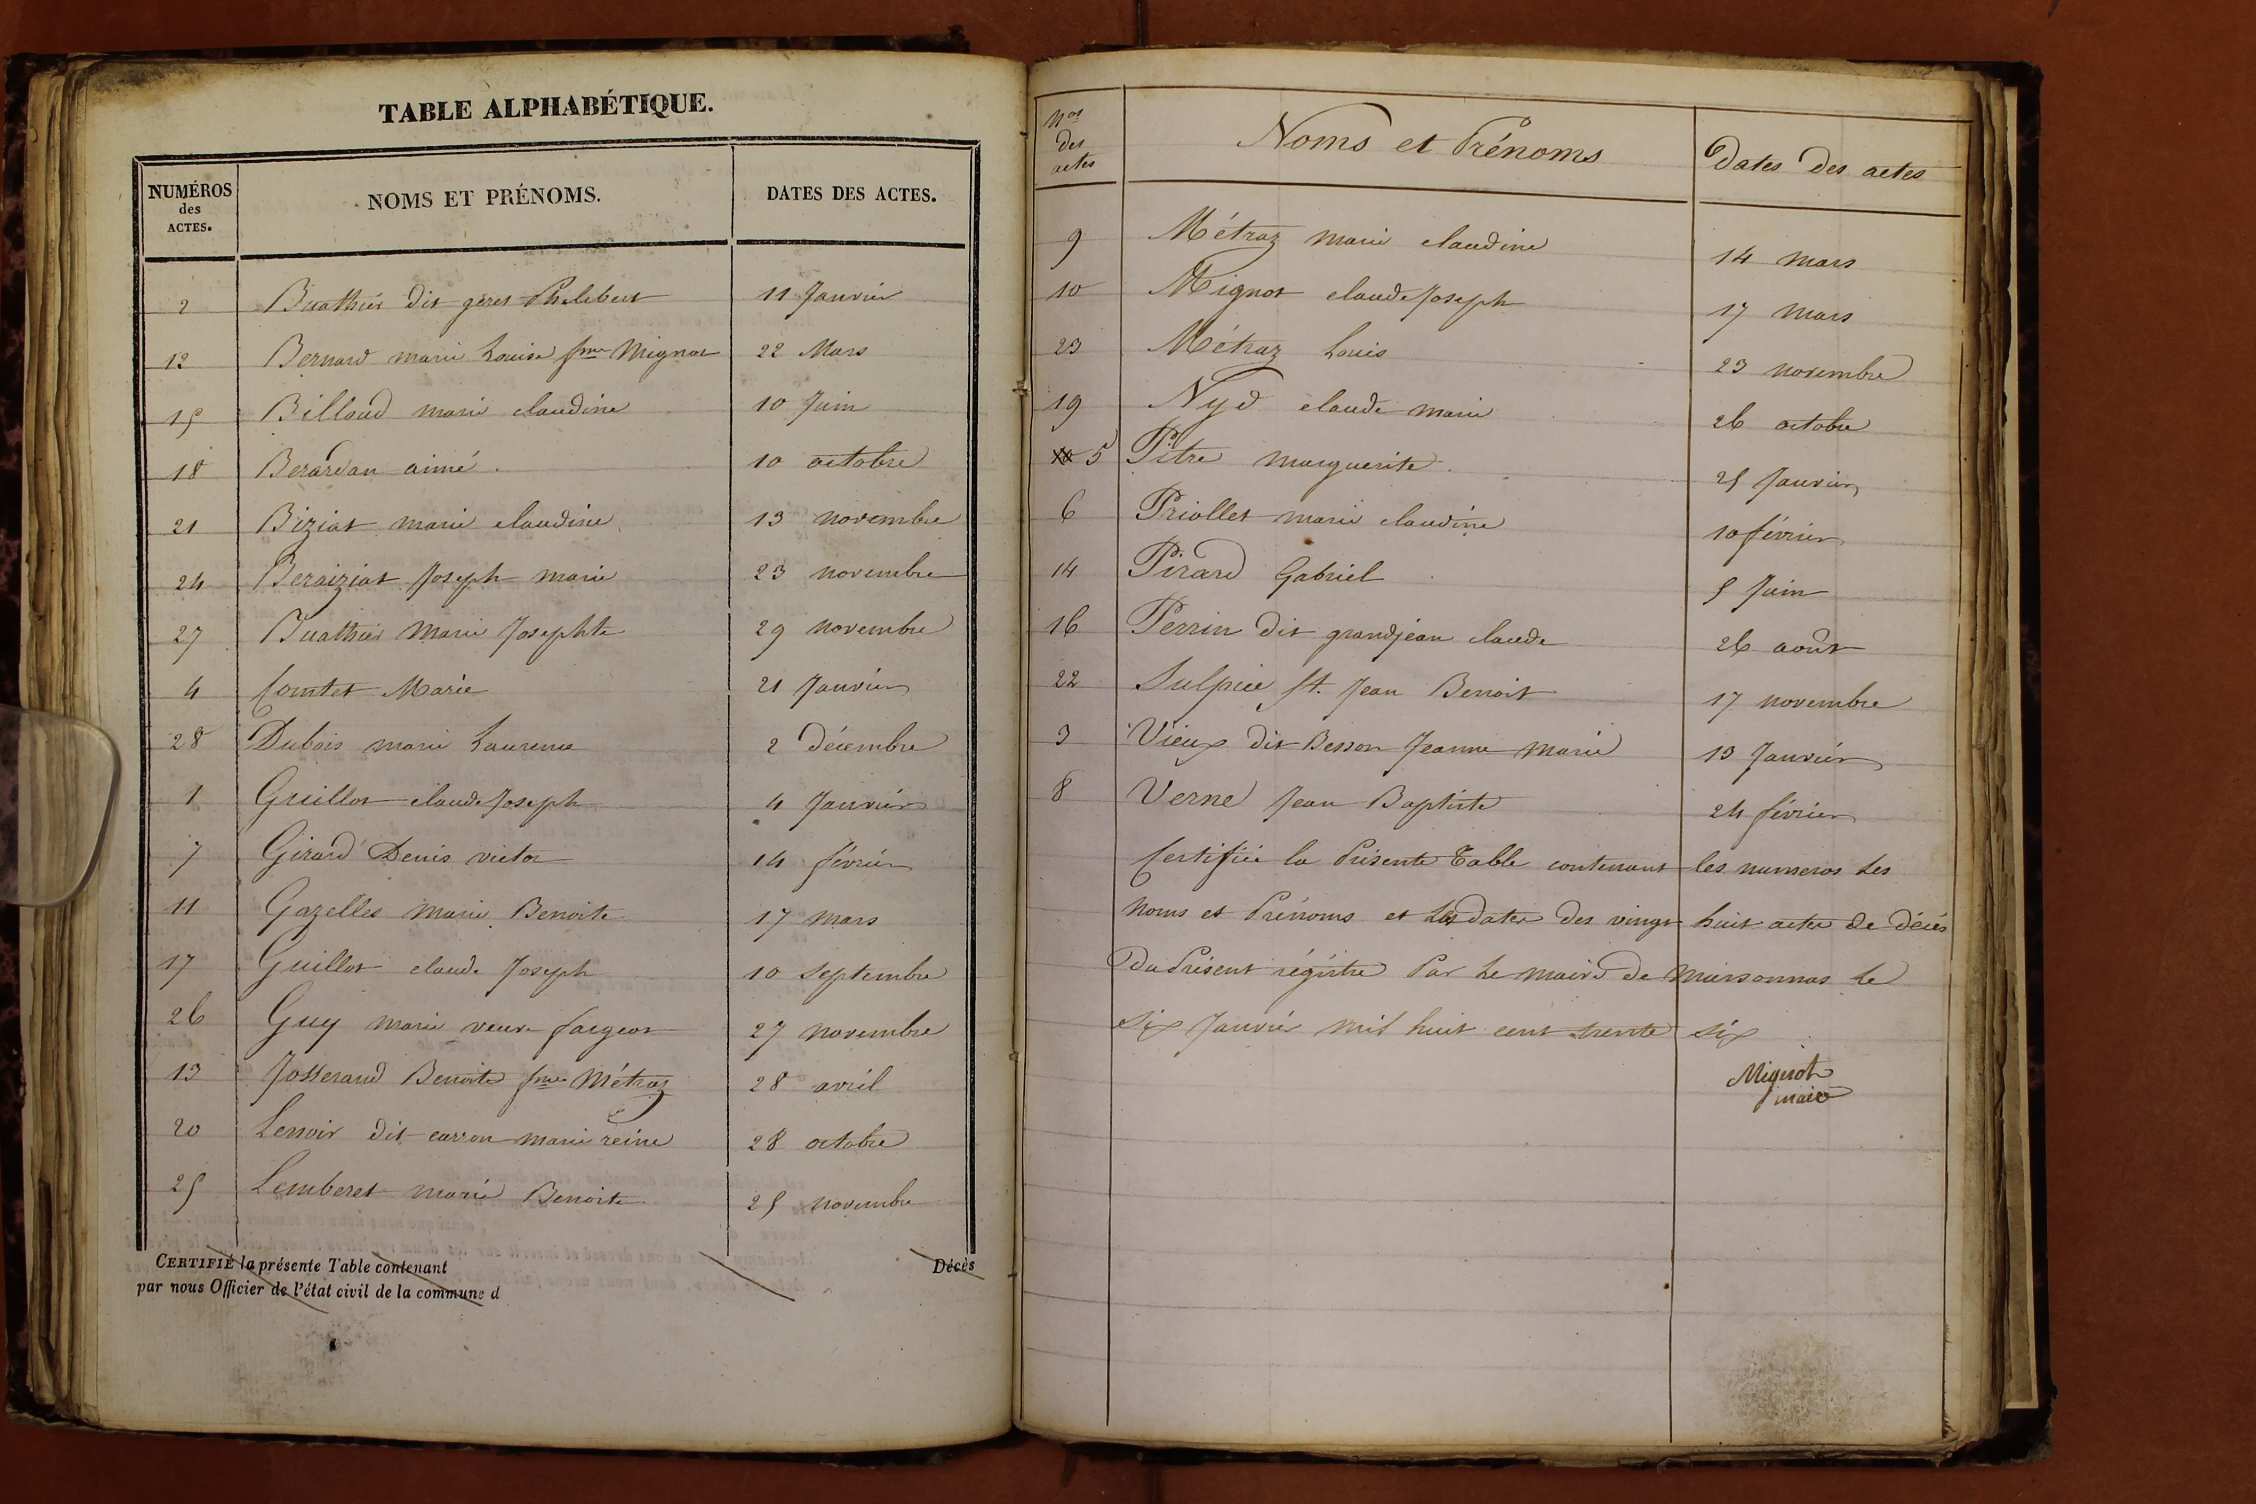 TABLE ALPHABÉTIQUE.
NUMÉROS des ACTES. NOMS ET PRÉNOMS. DATES DES ACTES.
2 Buathier dit geret Philebert 11 Janvier
12 Bernard marie Louise fme Mignot 22 Mars
15 Billoud marie claudine 10 Juin
18 Berardan aimé 10 octobre
21 Biziat marie claudine 13 novembre
24 Beraiziat Joseph marie 23 novembre
27 Buathier Marie Josephte 29 novembre
4 Comtet Marie 21 Janvier
28 Dubois marie Laurence 2 décembre
1 Guillot claude Joseph 4 Janvier
7 Girard Denis victor 14 février
11 Gazelles marie Benoite 17 mars
17 Guillot claude Joseph 10 Septembre
26 Guy marie veuve fargeot 27 novembre
13 Josserand Benoite fme Métraz 28 avril
20 Lenoir dit carron marie reine 28 octobre
25 Lemberet marie Benoite 25 novembre
CERTIFIÉ la présente Table contenant Décès
par nous Officier de l'état civil de la commune d
Nos des actes Noms et Prénoms Dates des actes
9 Métraz marie claudine 14 mars
10 Mignot claude Joseph 17 mars
23 Métraz Louis 23 novembre
19 Nyd claude marie 26 octobre
5 Pitre marguerite 25 Janvier
6 Priollet marie claudine 10 février
14 Pirard Gabriel 5 Juin
16 Perrin dit grandjean claude 26 août
22 Sulpice St. Jean Benoit 17 novembre
3 Vieux dit Besson Jeanne marie 13 Janvier
8 Verne Jean Baptiste 24 février
Certifiée la Présente Table contenant les numeros Les
noms et Prénoms et Les dates des vingt huit actes de décés
Du Présent régistre Par Le maire de marsonnas Le
six Janvier mil huit cent trente six
Mignot
maire